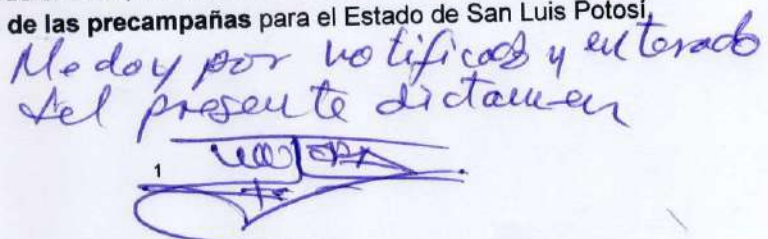 de las precampañas para el Estado de San Luis Potosí,
Me doy por notificado y enterado
del presente dictamen
1